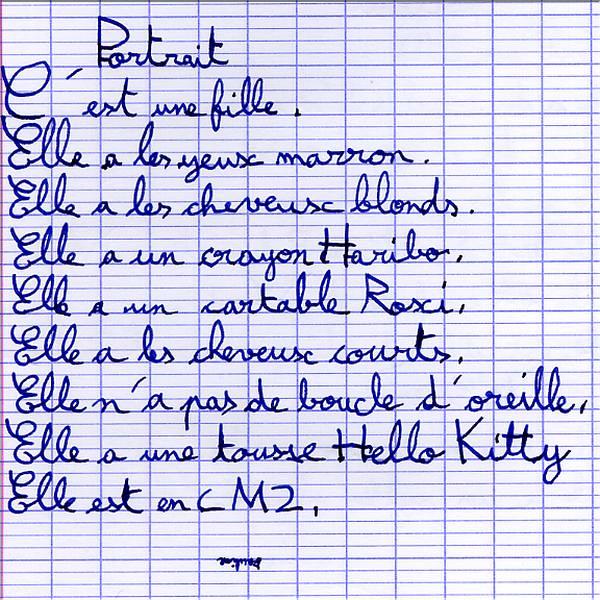 Portrait
C'est une fille.
Elle a les yeux marron.
Elle a les cheveux blonds.
Elle a un crayon Haribo.
Elle a un cartable Roxi.
Elle a les cheveux courts.
Elle n'a pas de boucle d'oreille.
Elle a une tousse Hello Kitty
Elle est en CM2.